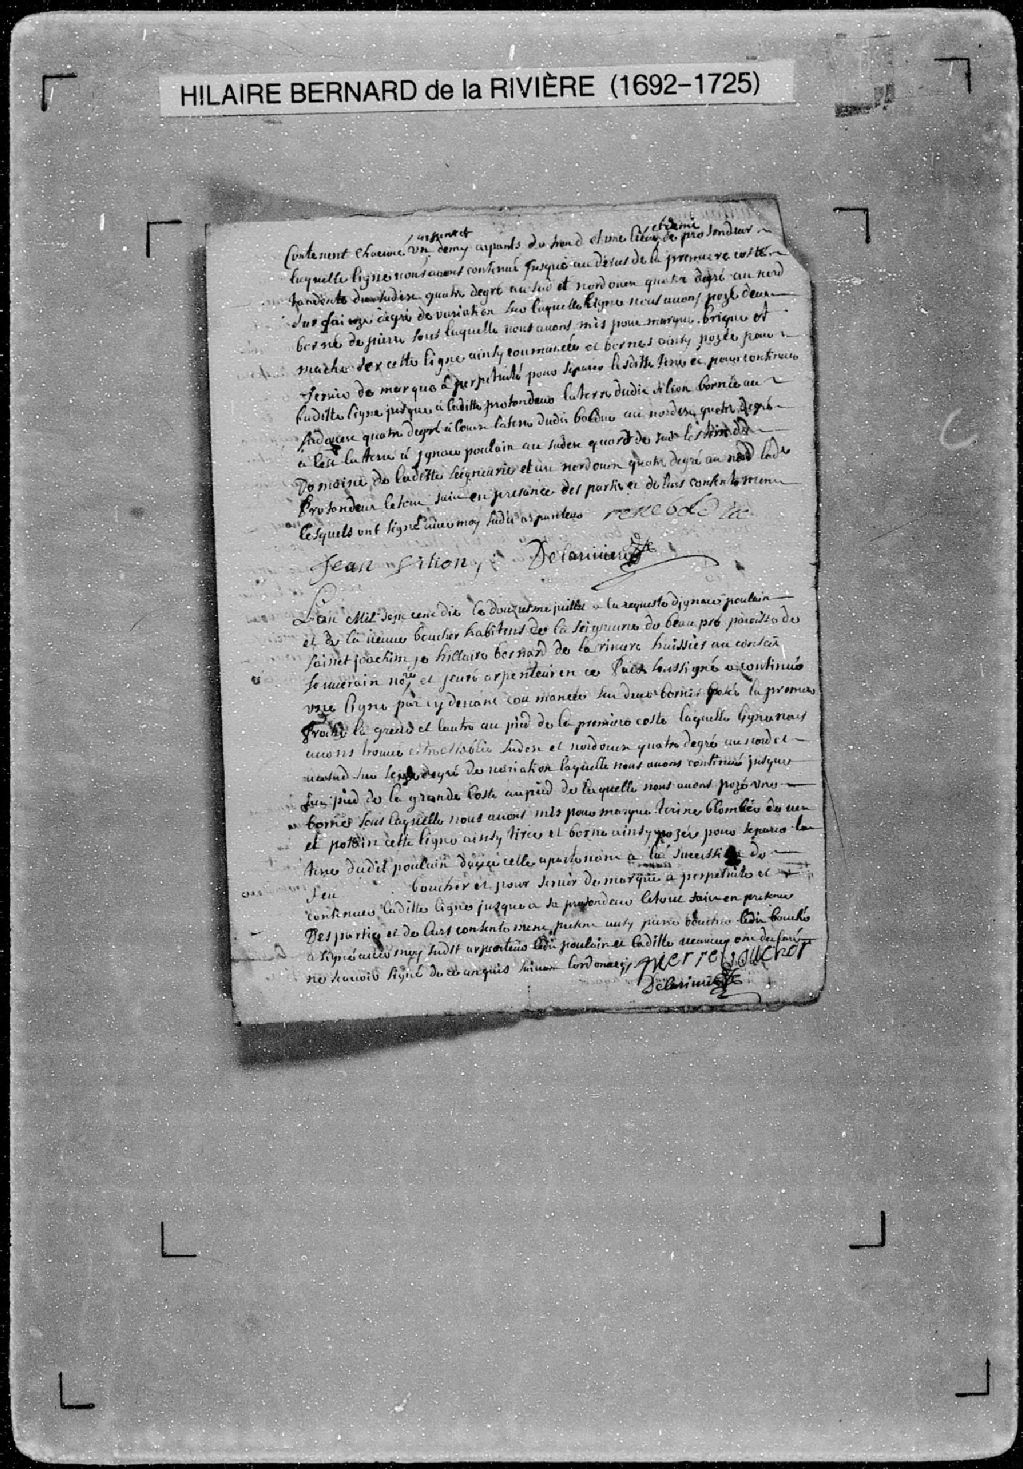 HILAIRE BERNARD de la RIVIÈRE (1692-1725)
arpent et et demi
Contenent chacune un demy arpants de frond et une lieue de profondeur
laquelle ligne nous avons continué jusque au desus de la premiere coste
tandante du sudest quatre degré au sud et nordouen quatre degré au nord
degré de variation sur laquelle ligne nous avons pozé deux
borne de pierre sous laquelle nous avons mis pour marque brique et
mache fer cette ligne ainsy commancée et bornes ainsy pozée pour
servire de marque a perpetuité pour separer lesditte terre et pour continuer
laditte ligne jusque a laditte profondeur la terre dudit filion bornée au
sudouen quatre degré a l'oues la terre dudit bolduc au nordest quatre degré
a l'est la terre a ygnace poulain au sudest quatre degré
domaine de laditte seigneurie et au nordouen quatre degré au nord lad
profondeur le tout fait en presence des partis et de leurs consentement
lesquels ont signé avec moy sudit arpanteur rene bolduc
Jean filion Delariviere
L'an Mil sept cent dix le douzieme juillet a la requeste dygnace poulain
et de la veuve boucher habitens de la seigneurie de beaupré paroisse de
sainct joachim je hillaire bernard de la riviere huissier au conseil
souverain no.re et juré arpenteur en ce païs soussigné a continué
une ligne par cy devant commancée sur deux bornes posés la premiere
proche la greve et lautre au pied de la premiere coste laquelle ligne nous
avons trouvé estre establie sudest et nordouen quatre degré au nord et
au sud sur degré de variation laquelle nous avons continué jusque
au pied de la grande coste au pied de laquelle nous avons pozé une
borne sous laquelle nous avons mis pour marque terine plombée de
et potein cette ligne ainsy tirée et borne ainsy pozée pour separer la
terre dudit poulain davec celle apartenant a la succession de
feu boucher et pour servir de marque a perpetuité et
continuer laditte ligne jusque a sa profondeur le tout fait en presence
des partis et de leurs consentement presence aussy pierre boucher ledit boucher
a signé avec moy sudit arpenteur ledit poulain et laditte veuve ont declaré
ne scavoir signé de ce anquis suivant lordonance pierre boucher
Delariviere